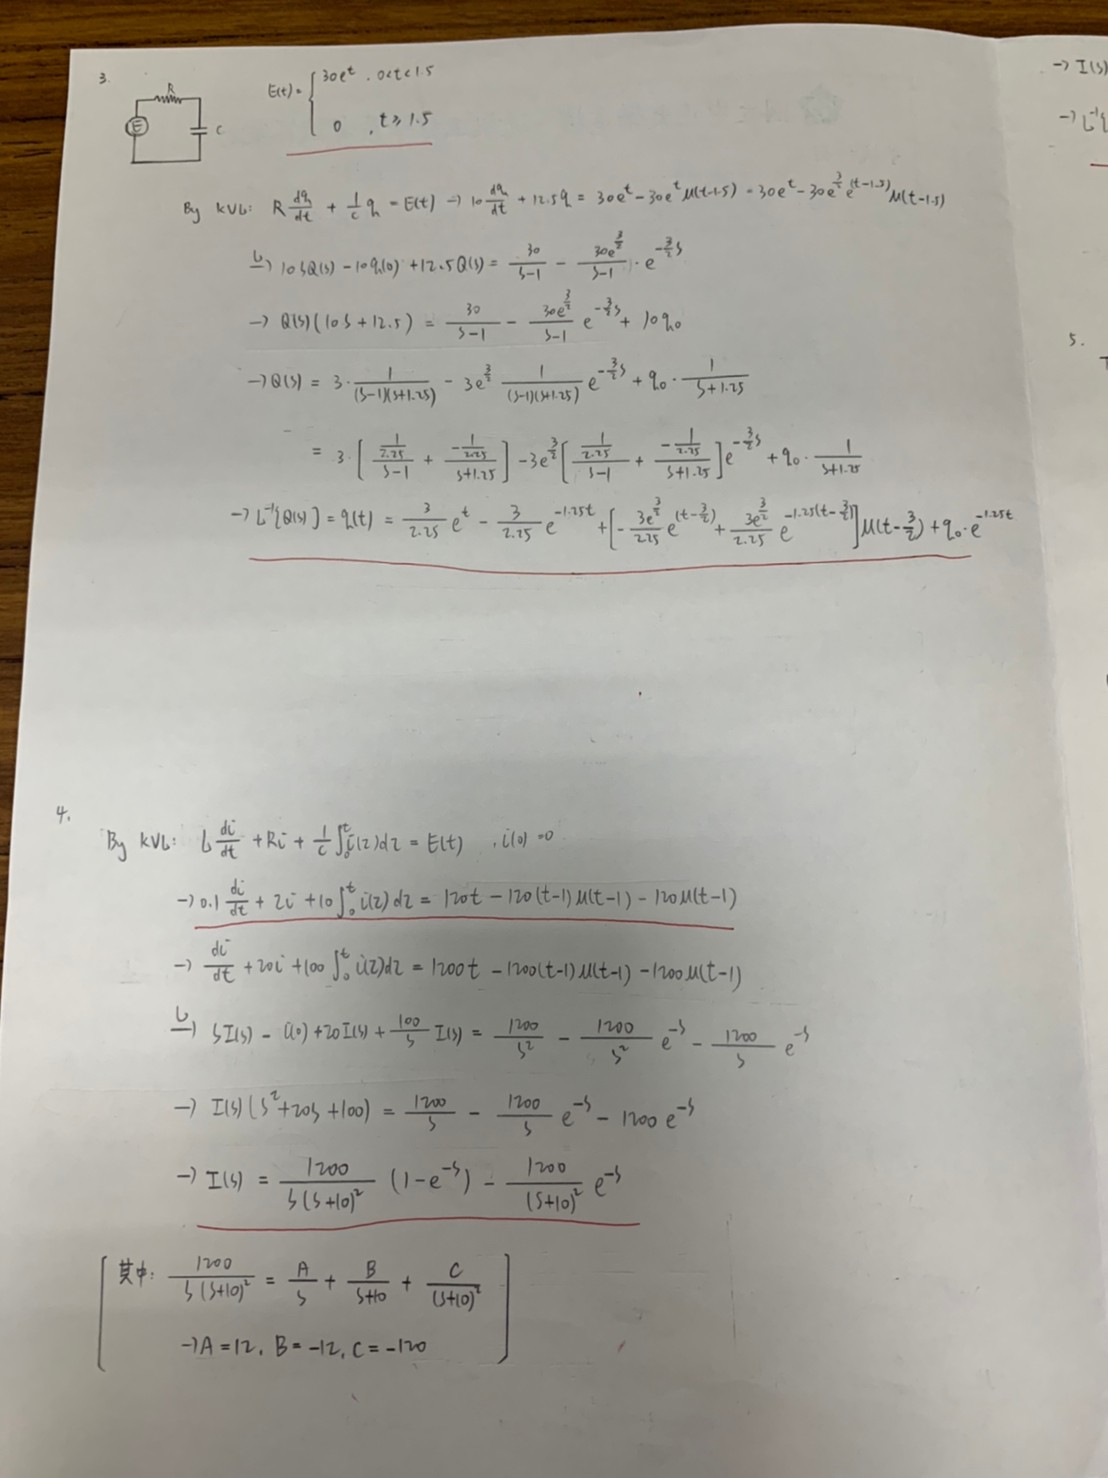 3.
R
E
C
E(t) = { 30e^t , 0<t<1.5
0 , t≥1.5
By KVL: R dq/dt + 1/C q = E(t) → 10 dq/dt + 12.5q = 30e^t - 30e^t μ(t-1.5) = 30e^t - 30e^(3/2) e^(t-1.5) μ(t-1.5)
L→ 10sQ(s) - 10q(0) + 12.5Q(s) = 30/(s-1) - 30e^(3/2)/(s-1) · e^(-3/2 s)
→ Q(s)(10s+12.5) = 30/(s-1) - 30e^(3/2)/(s-1) e^(-3/2 s) + 10q₀
→ Q(s) = 3 · 1/((s-1)(s+1.25)) - 3e^(3/2) 1/((s-1)(s+1.25)) e^(-3/2 s) + q₀ · 1/(s+1.25)
= 3 · [ (1/2.25)/(s-1) + (-1/2.25)/(s+1.25) ] - 3e^(3/2) [ (1/2.25)/(s-1) + (-1/2.25)/(s+1.25) ] e^(-3/2 s) + q₀ · 1/(s+1.25)
→ L⁻¹{Q(s)} = q(t) = 3/2.25 e^t - 3/2.25 e^(-1.25t) + [ - 3e^(3/2)/2.25 e^(t-3/2) + 3e^(3/2)/2.25 e^(-1.25(t-3/2)) ] μ(t-3/2) + q₀ · e^(-1.25t)
4.
By KVL: L di/dt + Ri + 1/C ∫₀^t i(z)dz = E(t) , i(0)=0
→ 0.1 di/dt + 2i + 10 ∫₀^t i(z)dz = 120t - 120(t-1)μ(t-1) - 120μ(t-1)
→ di/dt + 20i + 100 ∫₀^t i(z)dz = 1200t - 1200(t-1)μ(t-1) - 1200μ(t-1)
L→ sI(s) - i(0) + 20I(s) + 100/s I(s) = 1200/s² - 1200/s² e^(-s) - 1200/s e^(-s)
→ I(s)(s²+20s+100) = 1200/s - 1200/s e^(-s) - 1200e^(-s)
→ I(s) = 1200/(s(s+10)²) (1-e^(-s)) - 1200/(s+10)² e^(-s)
[ 其中: 1200/(s(s+10)²) = A/s + B/(s+10) + C/(s+10)²
→ A=12, B=-12, C=-120 ]
→ I(s)
→ L⁻¹{
5.